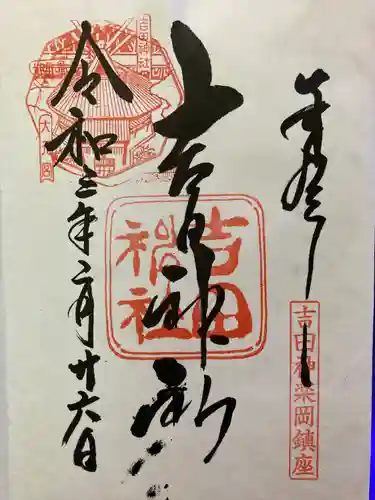 奉拝
吉田神楽岡鎮座
吉田神社
吉田神社
吉田神社
大元宮
令和三年二月廿六日